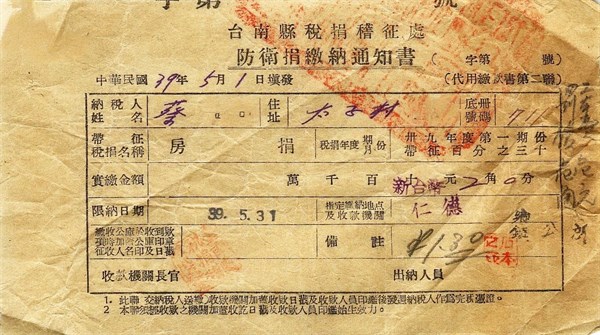 字第 號
台南縣稅捐稽征處
防衛捐繳納通知書
(字第 號
中華民國39年5月1日填發
(代用繳款書第二聯)
納稅人姓名 蔡 住址 太子村 底冊號碼 711
帶征稅捐名稱 房捐 稅捐年度期份月份 卅九年度第一期份帶征百分之三十
實繳金額 萬千百十元2角0分
新台幣
限納日期 39.5.31 指定繳納地點及收款機關 仁德
繳收公庫於收到款項時加蓋公庫印章征收人名印及日戳
備註 $1.30
收款機關長官 出納人員
1. 此聯交納稅人送繳收款機關加蓋收款日戳及收款人員印鑑後發還納稅人作為完稅憑證。
2. 本聯須經收款之機關加蓋收訖日戳及收款人員印鑑始生效力。